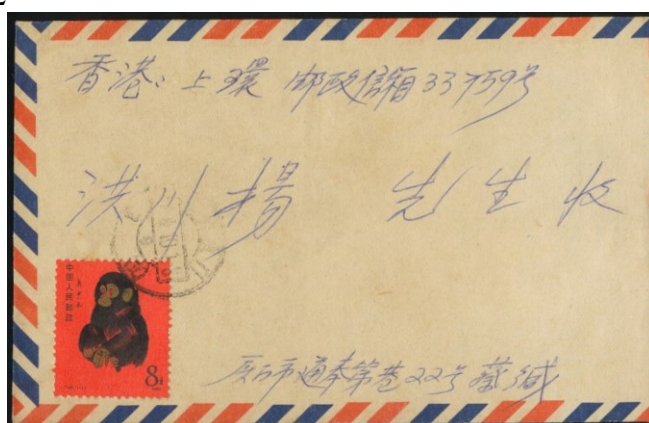 香港：上環 邮政信箱33759号
洪川揚 先生 收
中国人民邮政
8分
市通奉第巷22号 蔡缄